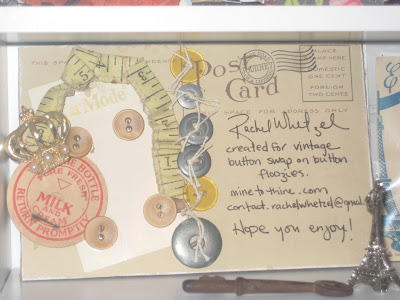 la Mode
Post
Card
PLACE
DOMESTIC
ONE CENT
FOREIGN
TWO CENTS
SPACE FOR ADDRESS ONLY
Rachel Whetzel
created for vintage
button swap on button
floozies.
mine to thine.com
contact.rachelwhetzel@gmail
Hope you enjoy!
BOTTLE
PURE FRESH
MILK
AND
CREAM
RETURN PROMPTLY